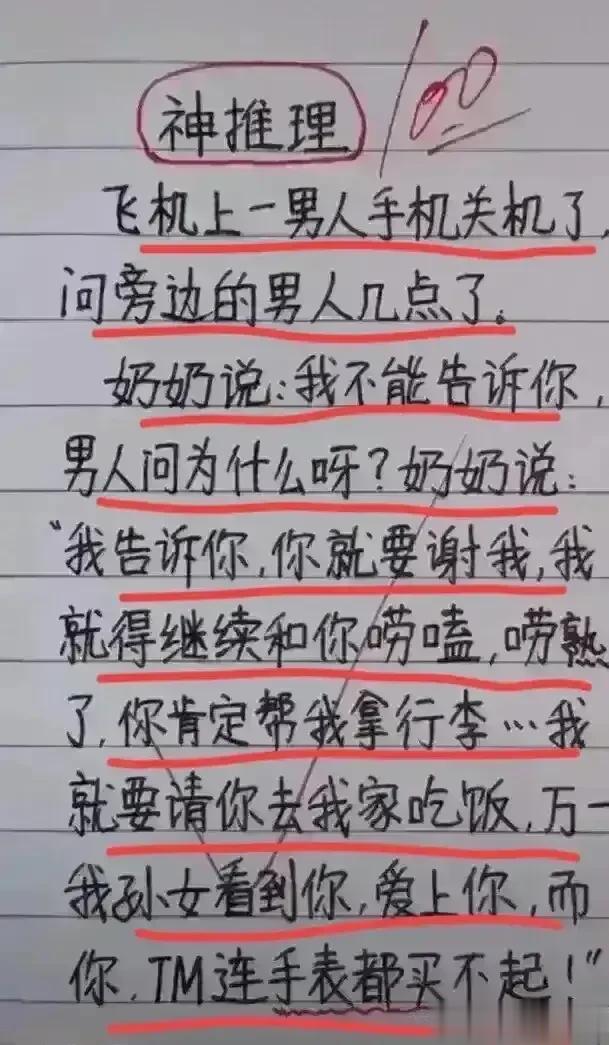 神推理
100
飞机上一男人手机关机了,
问旁边的男人几点了。
奶奶说:我不能告诉你,
男人问为什么呀?奶奶说:
“我告诉你,你就要谢我,我
就得继续和你唠嗑,唠熟
了,你肯定帮我拿行李…我
就要请你去我家吃饭,万一
我孙女看到你,爱上你,而
你,TM连手表都买不起!”